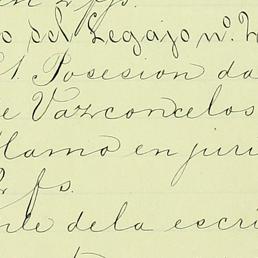 o del Legajo nº. 2
Posesion da
e Vazconcelos
llamo en juri
2 fs.
nte dela escri